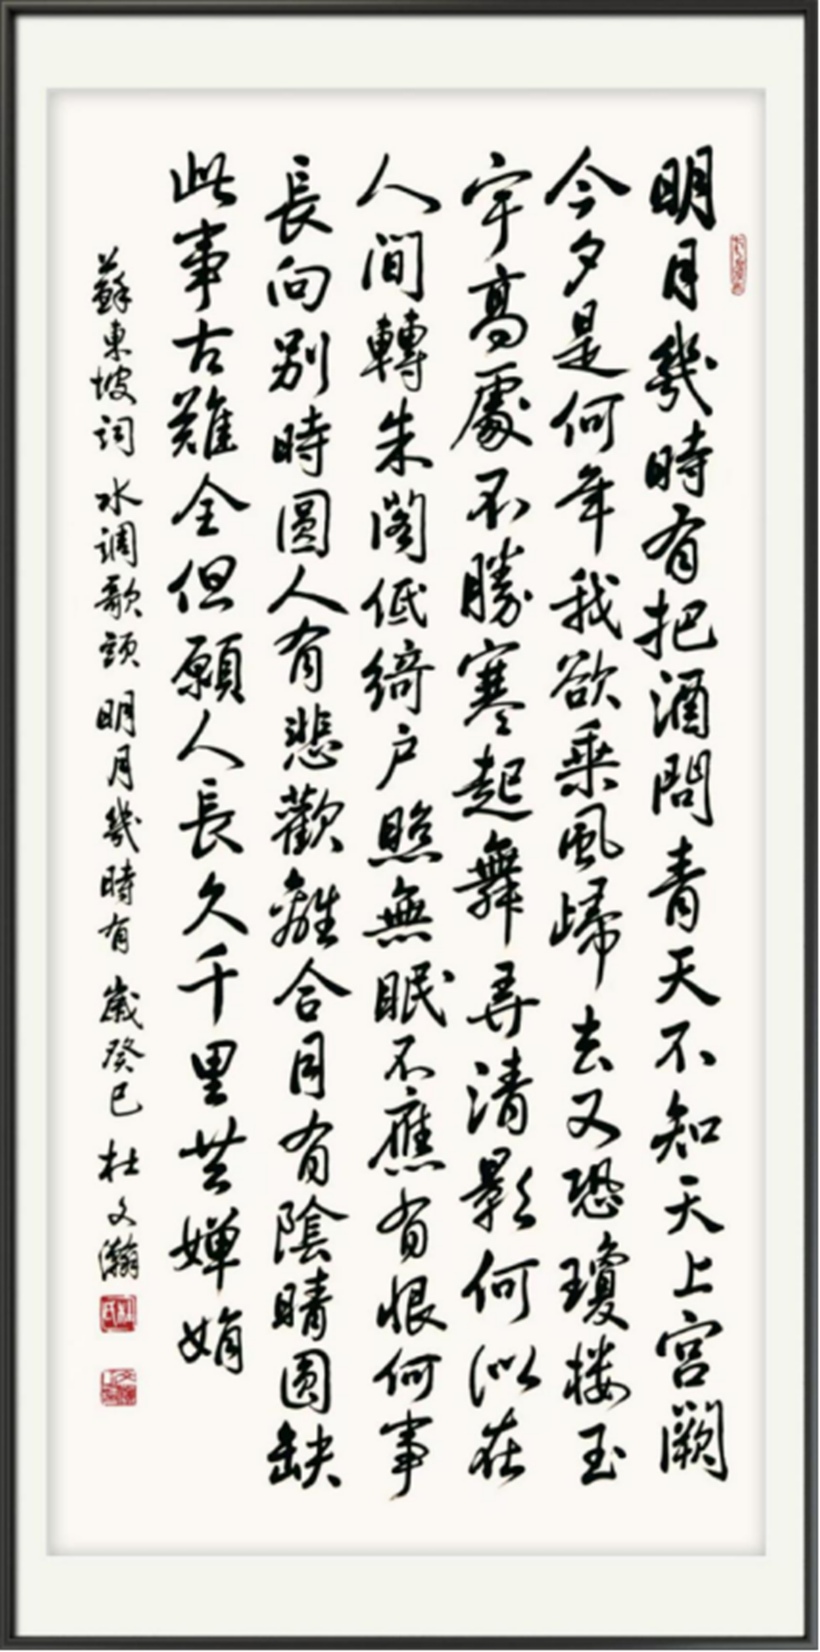 明月幾時有把酒問青天不知天上宮闕
今夕是何年我欲乘風歸去又恐瓊樓玉
宇高處不勝寒起舞弄清影何似在
人間轉朱閣低綺戶照無眠不應有恨何事
長向別時圓人有悲歡離合月有陰晴圓缺
此事古難全但願人長久千里共嬋娟
蘇東坡詞 水調歌頭 明月幾時有 歲癸巳 杜文瀚